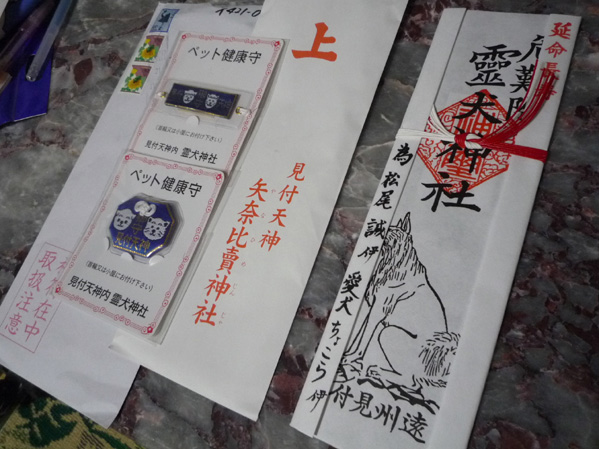 〒421-0
ペット健康守
(首輪又は小屋にお付け下さい)
見付天神内 霊犬神社
ペット健康守
見付天神
(首輪又は小屋にお付け下さい)
見付天神内 霊犬神社
在中
取扱注意
上
見付天神
矢奈比賣神社
延命長
靈犬神社
為松尾誠伊 愛犬ちょこら伊
遠州見付